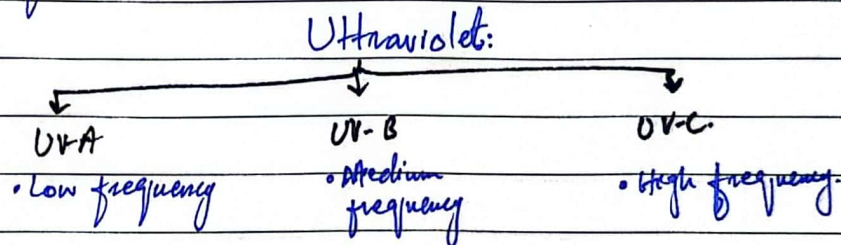 Ultraviolet:
UV-A UV-B UV-C.
• Low frequency • Medium frequency • High frequency.